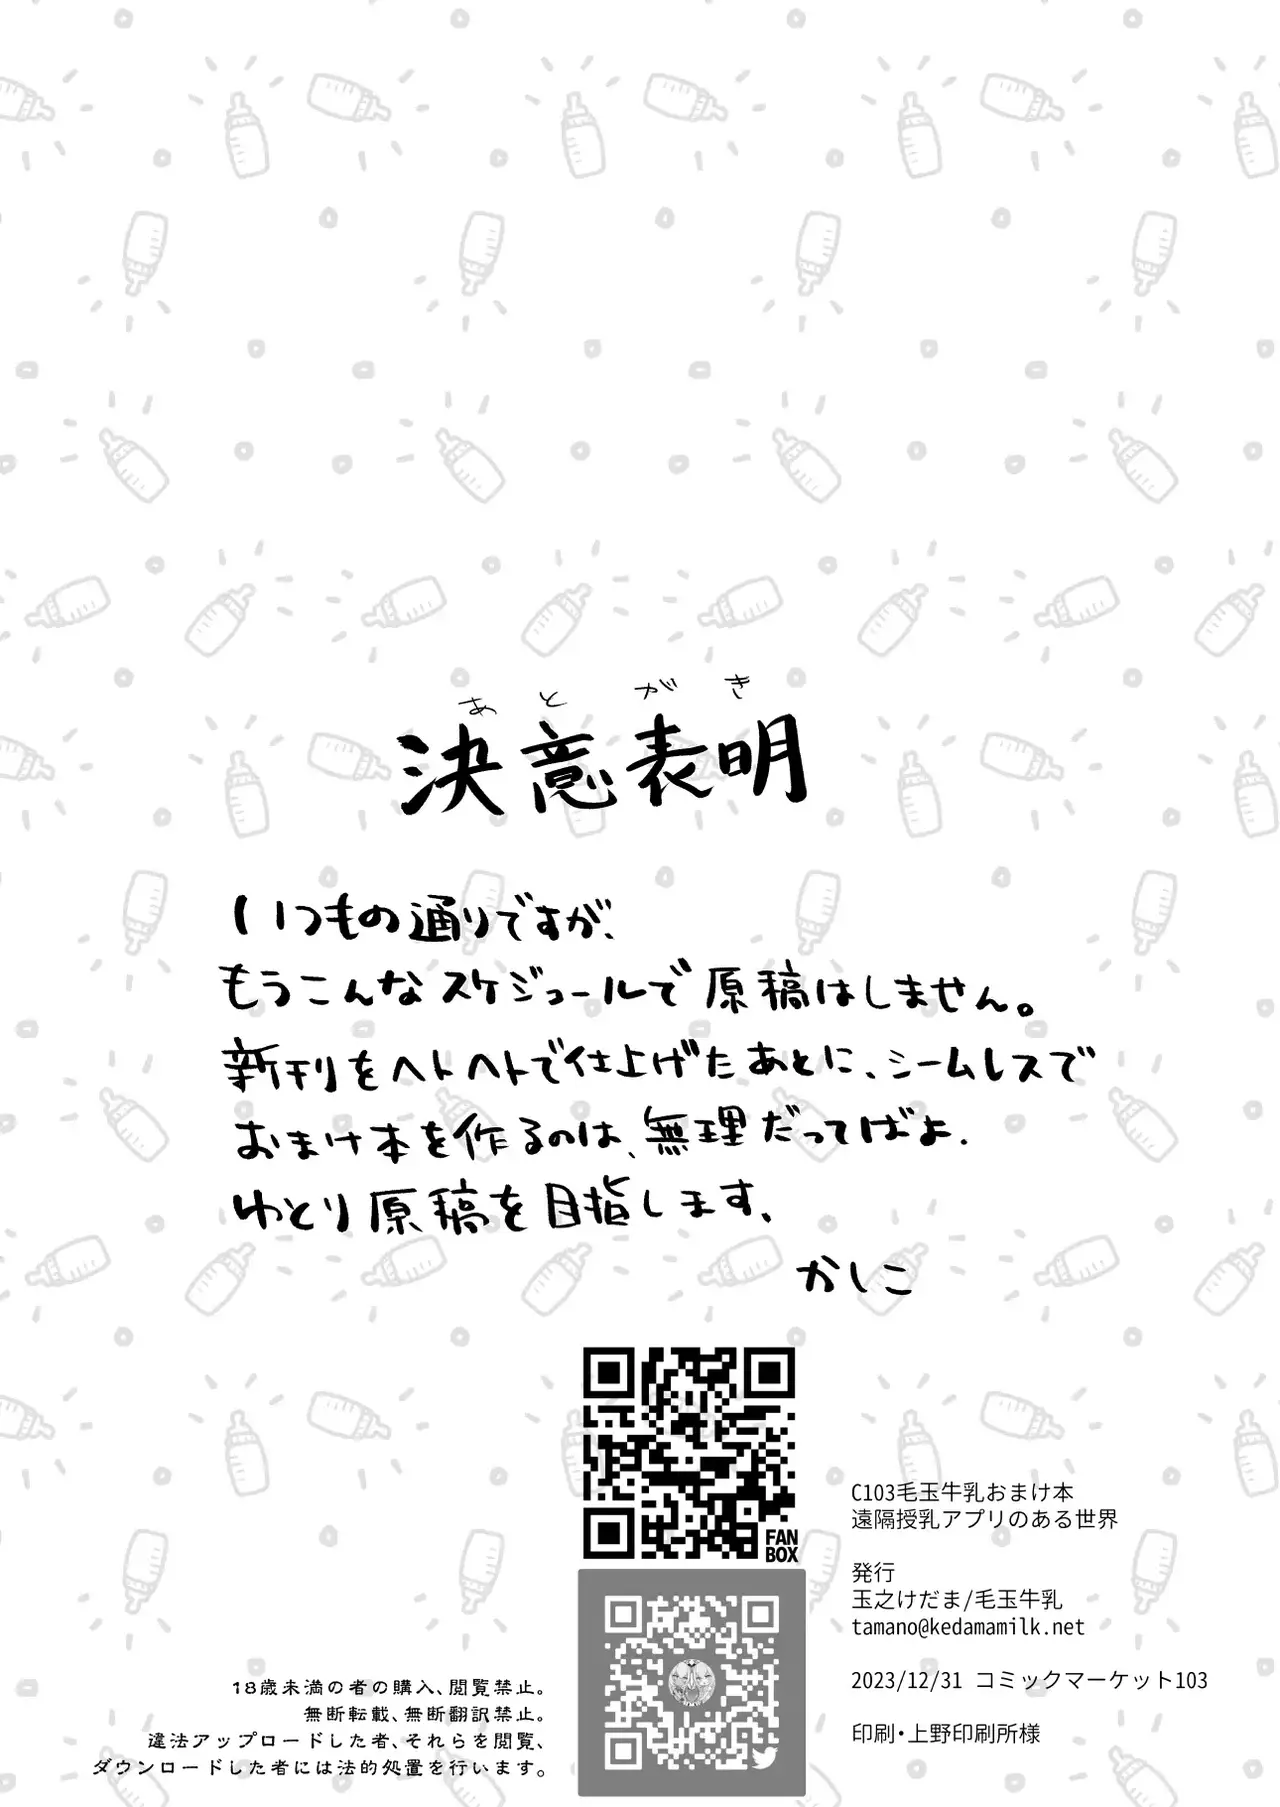 あとがき
決意表明
いつもの通りですが、
もうこんなスケジュールで原稿はしません。
新刊をヘトヘトで仕上げたあとに、シームレスで
おまけ本を作るのは、無理だってばよ.
ゆとり原稿を目指します、
かしこ
FAN
BOX
C103毛玉牛乳おまけ本
遠隔授乳アプリのある世界
発行
玉之けだま/毛玉牛乳
tamano@kedamamilk.net
2023/12/31 コミックマーケット103
印刷・上野印刷所様
18歳未満の者の購入、閲覧禁止。
無断転載、無断翻訳禁止。
違法アップロードした者、それらを閲覧、
ダウンロードした者には法的処置を行います。